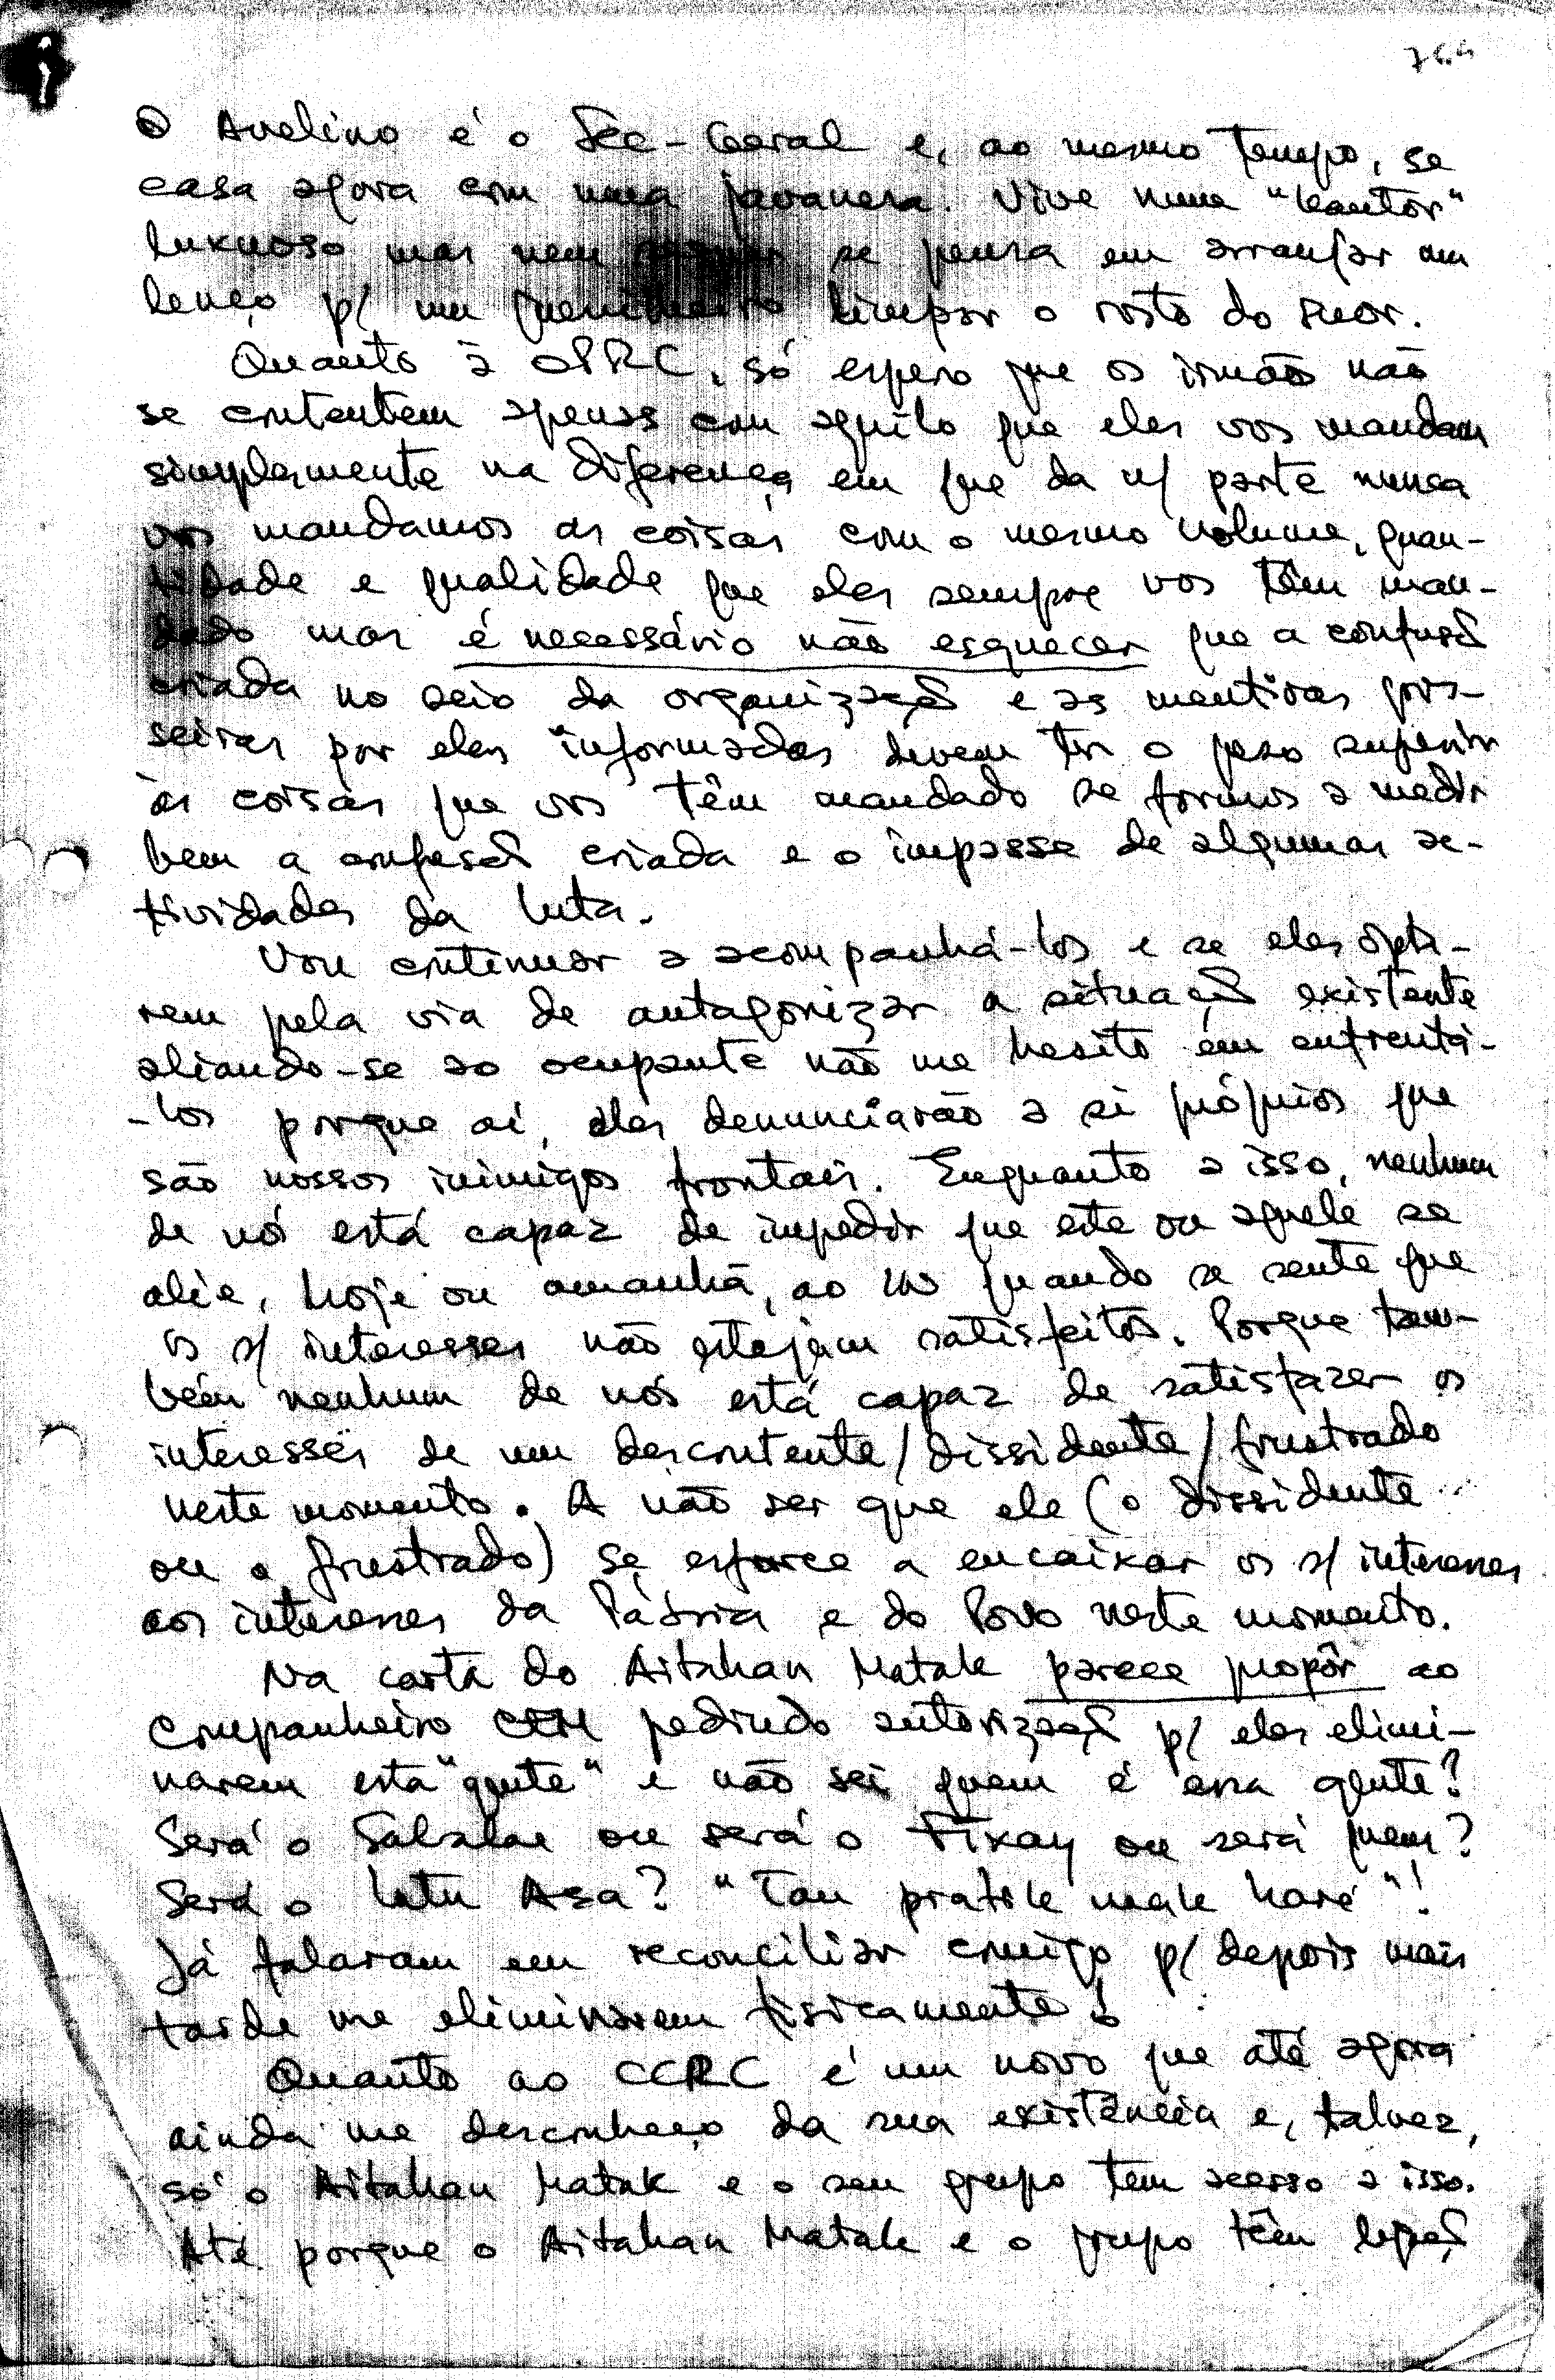 O Avelino é o Sec-Geral e, ao mesmo tempo, se
casa agora com uma javanesa. Vive numa "kantor"
luxuoso mas nem se pensa em arranjar um
lenço p/ um limpar o rosto do suor.
Quanto à OPRC, só espero que os irmãos não
se contentem apenas com aquilo que eles vos mandam
simplesmente na diferença em que da n/ parte nunca
vos mandamos as coisas com o mesmo volume, quan-
tidade e qualidade que eles sempre vos têm man-
dado mas é necessário não esquecer que a confusã
criada no seio da organizaçã e as mentiras gros-
seiras por eles informadas devem ter o peso superior
às coisas que vos têm mandado se formos a medir
bem a confusã criada e o impasse de algumas ac-
tividades da luta.
Vou continuar a acompanhá-los e se eles opta-
rem pela via de antagonizar a situaçã existente
aliando-se ao ocupante não me hesito em enfrentá-
-los porque aí, eles denunciarão a si próprios que
são nossos inimigos frontais. Enquanto a isso, nenhum
de nós está capaz de impedir que este ou aquele se
alie, hoje ou amanhã, ao in quando se sente que
os s/ interesses não estejam satisfeitos. Porque tam-
bém nenhum de nós está capaz de satisfazer os
interesses de um descontente/dissidente/frustrado
neste momento. A não ser que ele (o dissidente
ou o frustrado) se esforce a encaixar os s/ interesses
aos interesses da Pátria e do Povo neste momento.
Na carta do Aitahan Matak parece propôr ao
Companheiro CEM pedindo autorizaçã p/ eles elimi-
narem esta "gente" e não sei quem é essa gente?
Será o Sabalae ou será o Fixay ou será quem?
Será o Lutu Asa? "Tau pratok mak haré"!
Já falaram em reconciliar comigo p/ depois mais
tarde me eliminarem fisicamente!
Quanto ao CCRC é um novo que até agora
ainda me desconheço da sua existência e, talvez,
só o Aitahan Matak e o seu grupo tem acesso a isso.
Até porque o Aitahan Matak e o grupo têm ligaçã